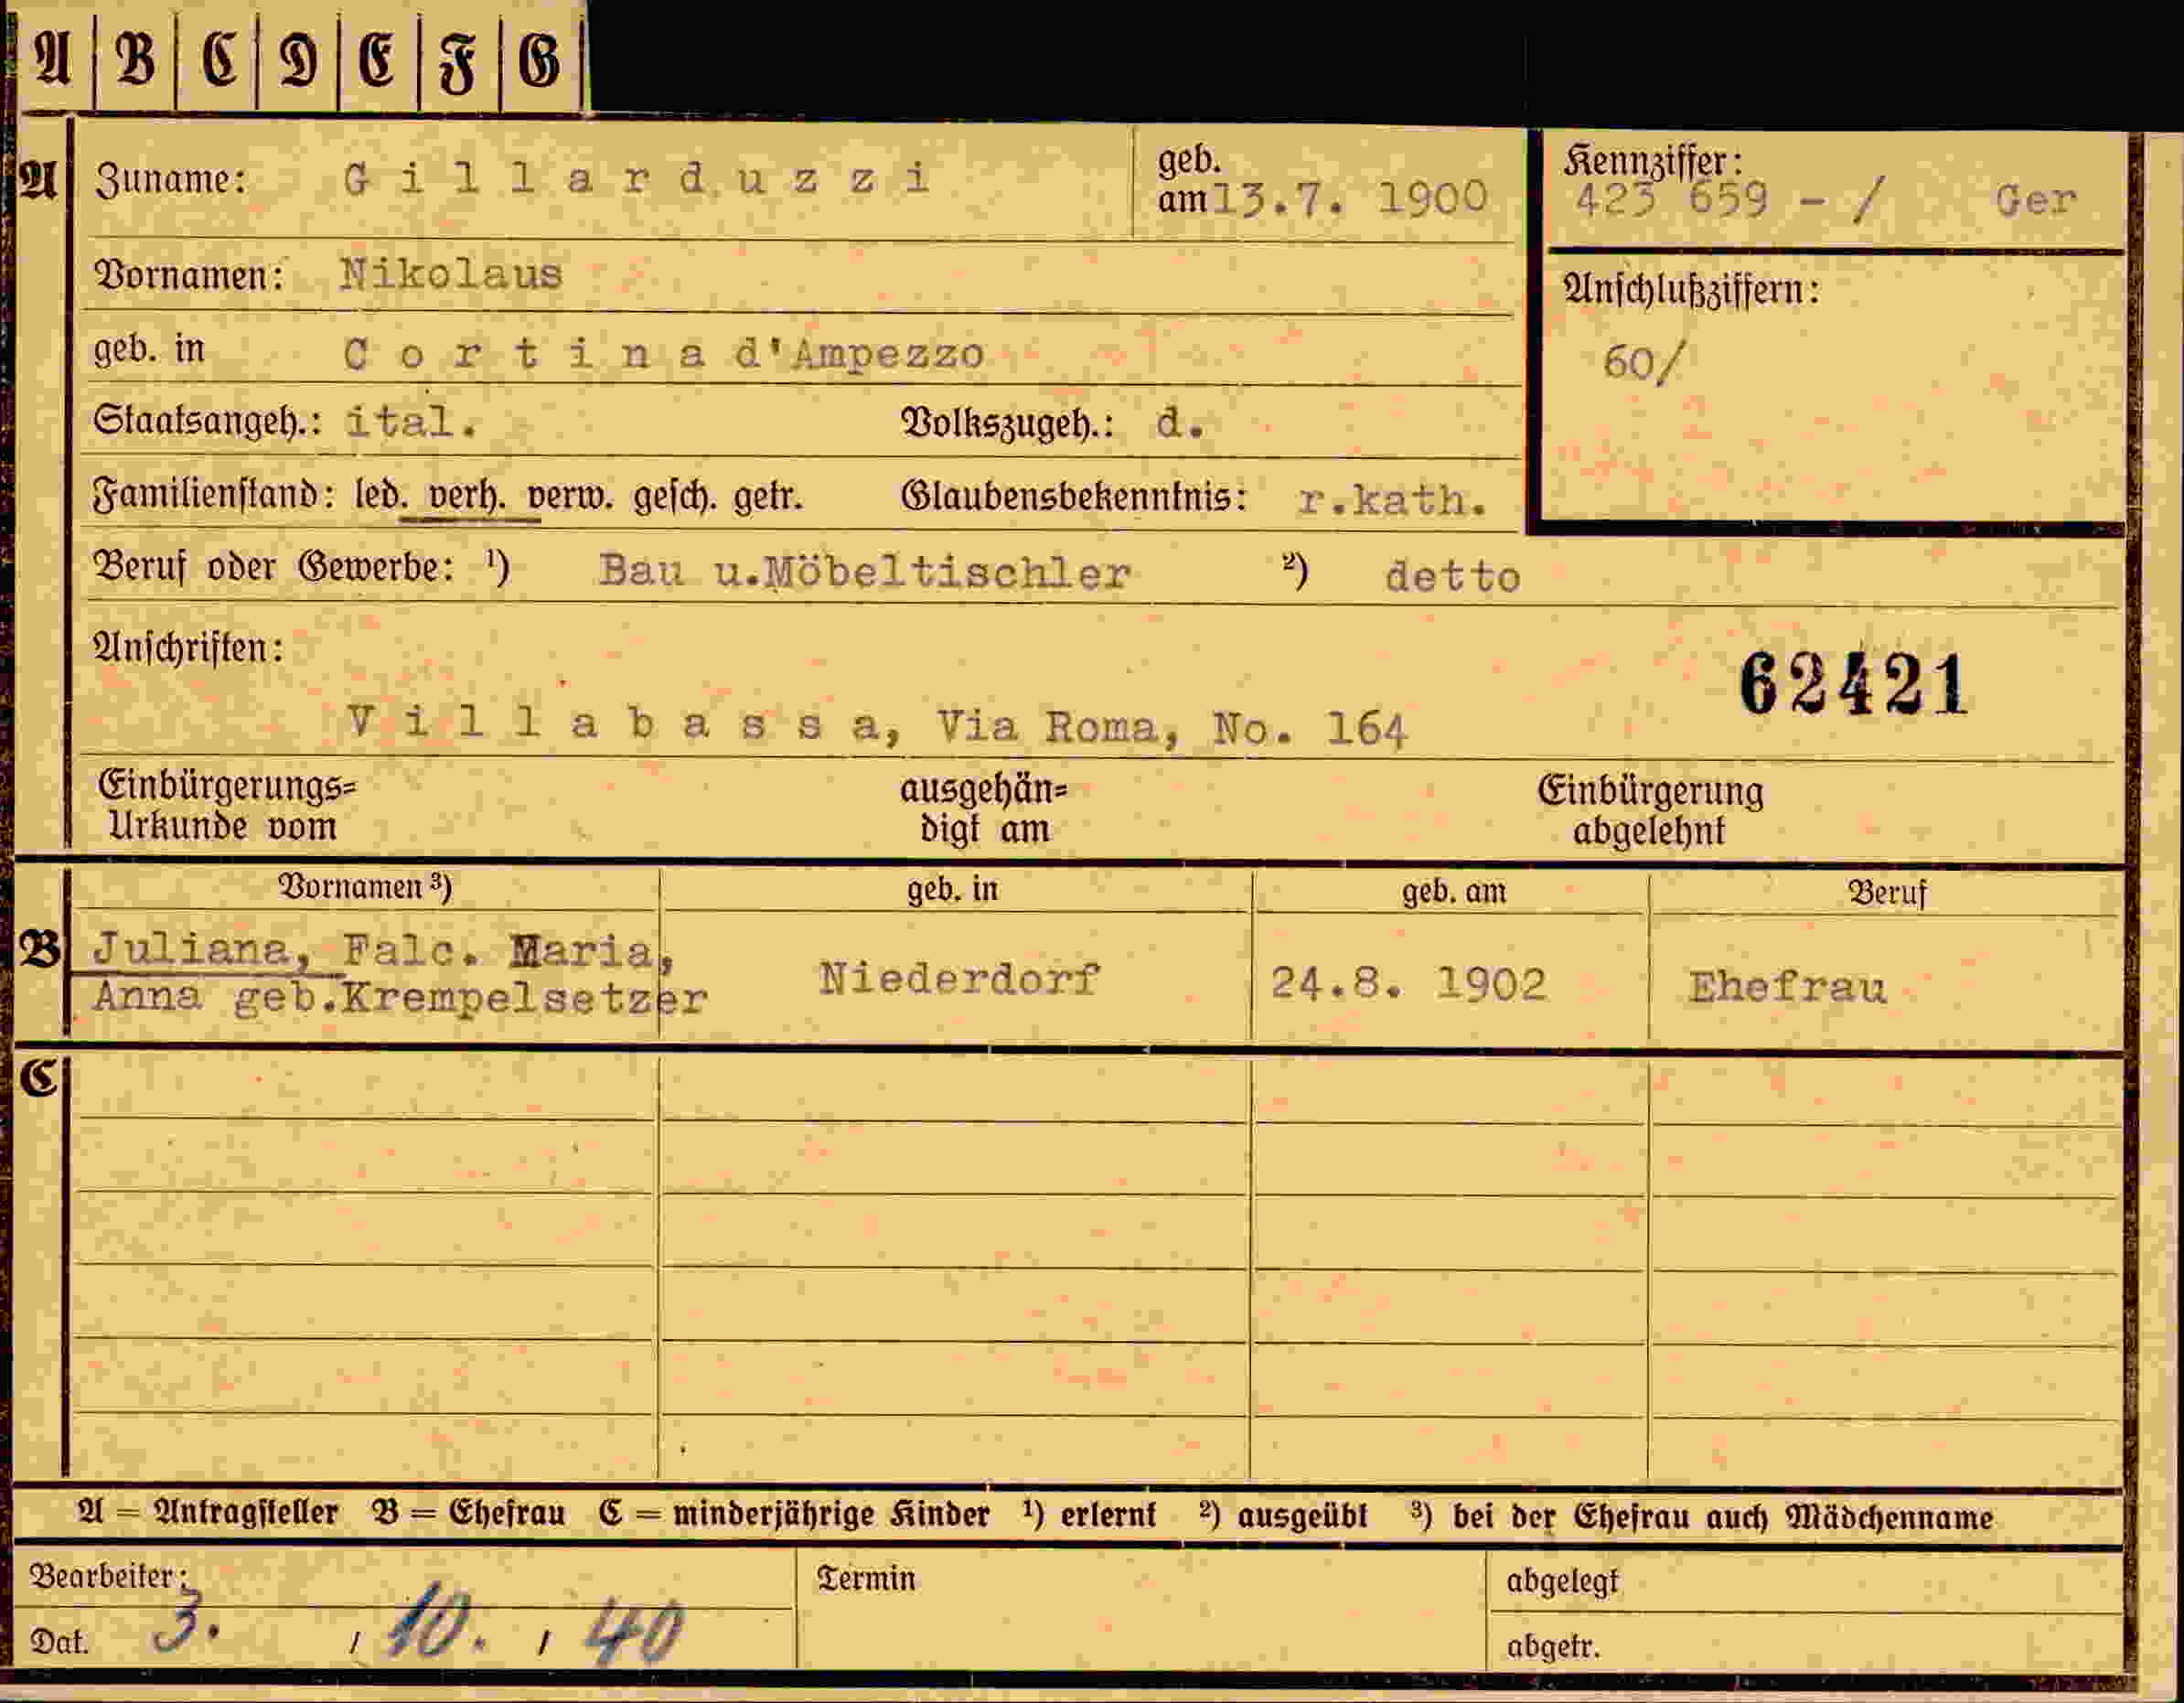 A B C D E F G
A Zuname: Gillarduzzi geb. am 13.7. 1900
Kennziffer: 423 659 - / Ger
Vornamen: Nikolaus
Anschlußziffern:
geb. in Cortina d'Ampezzo
60/
Staatsangeh.: ital. Volkszugeh.: d.
Familienstand: led. verh. verw. gesch. getr. Glaubensbekenntnis: r.kath.
Beruf oder Gewerbe: ¹) Bau u.Möbeltischler ²) detto
Anschriften:
62421
Villabassa, Via Roma, No. 164
Einbürgerungs= ausgehän= Einbürgerung
Urkunde vom digt am abgelehnt
Vornamen ³) geb. in geb. am Beruf
B Juliana, Falc. Maria,
Anna geb.Krempelsetzer Niederdorf 24.8. 1902 Ehefrau
C
A = Antragsteller B = Ehefrau C = minderjährige Kinder ¹) erlernt ²) ausgeübt ³) bei der Ehefrau auch Mädchenname
Bearbeiter: Termin abgelegt
Dat. 3. / 10. / 40 abgetr.